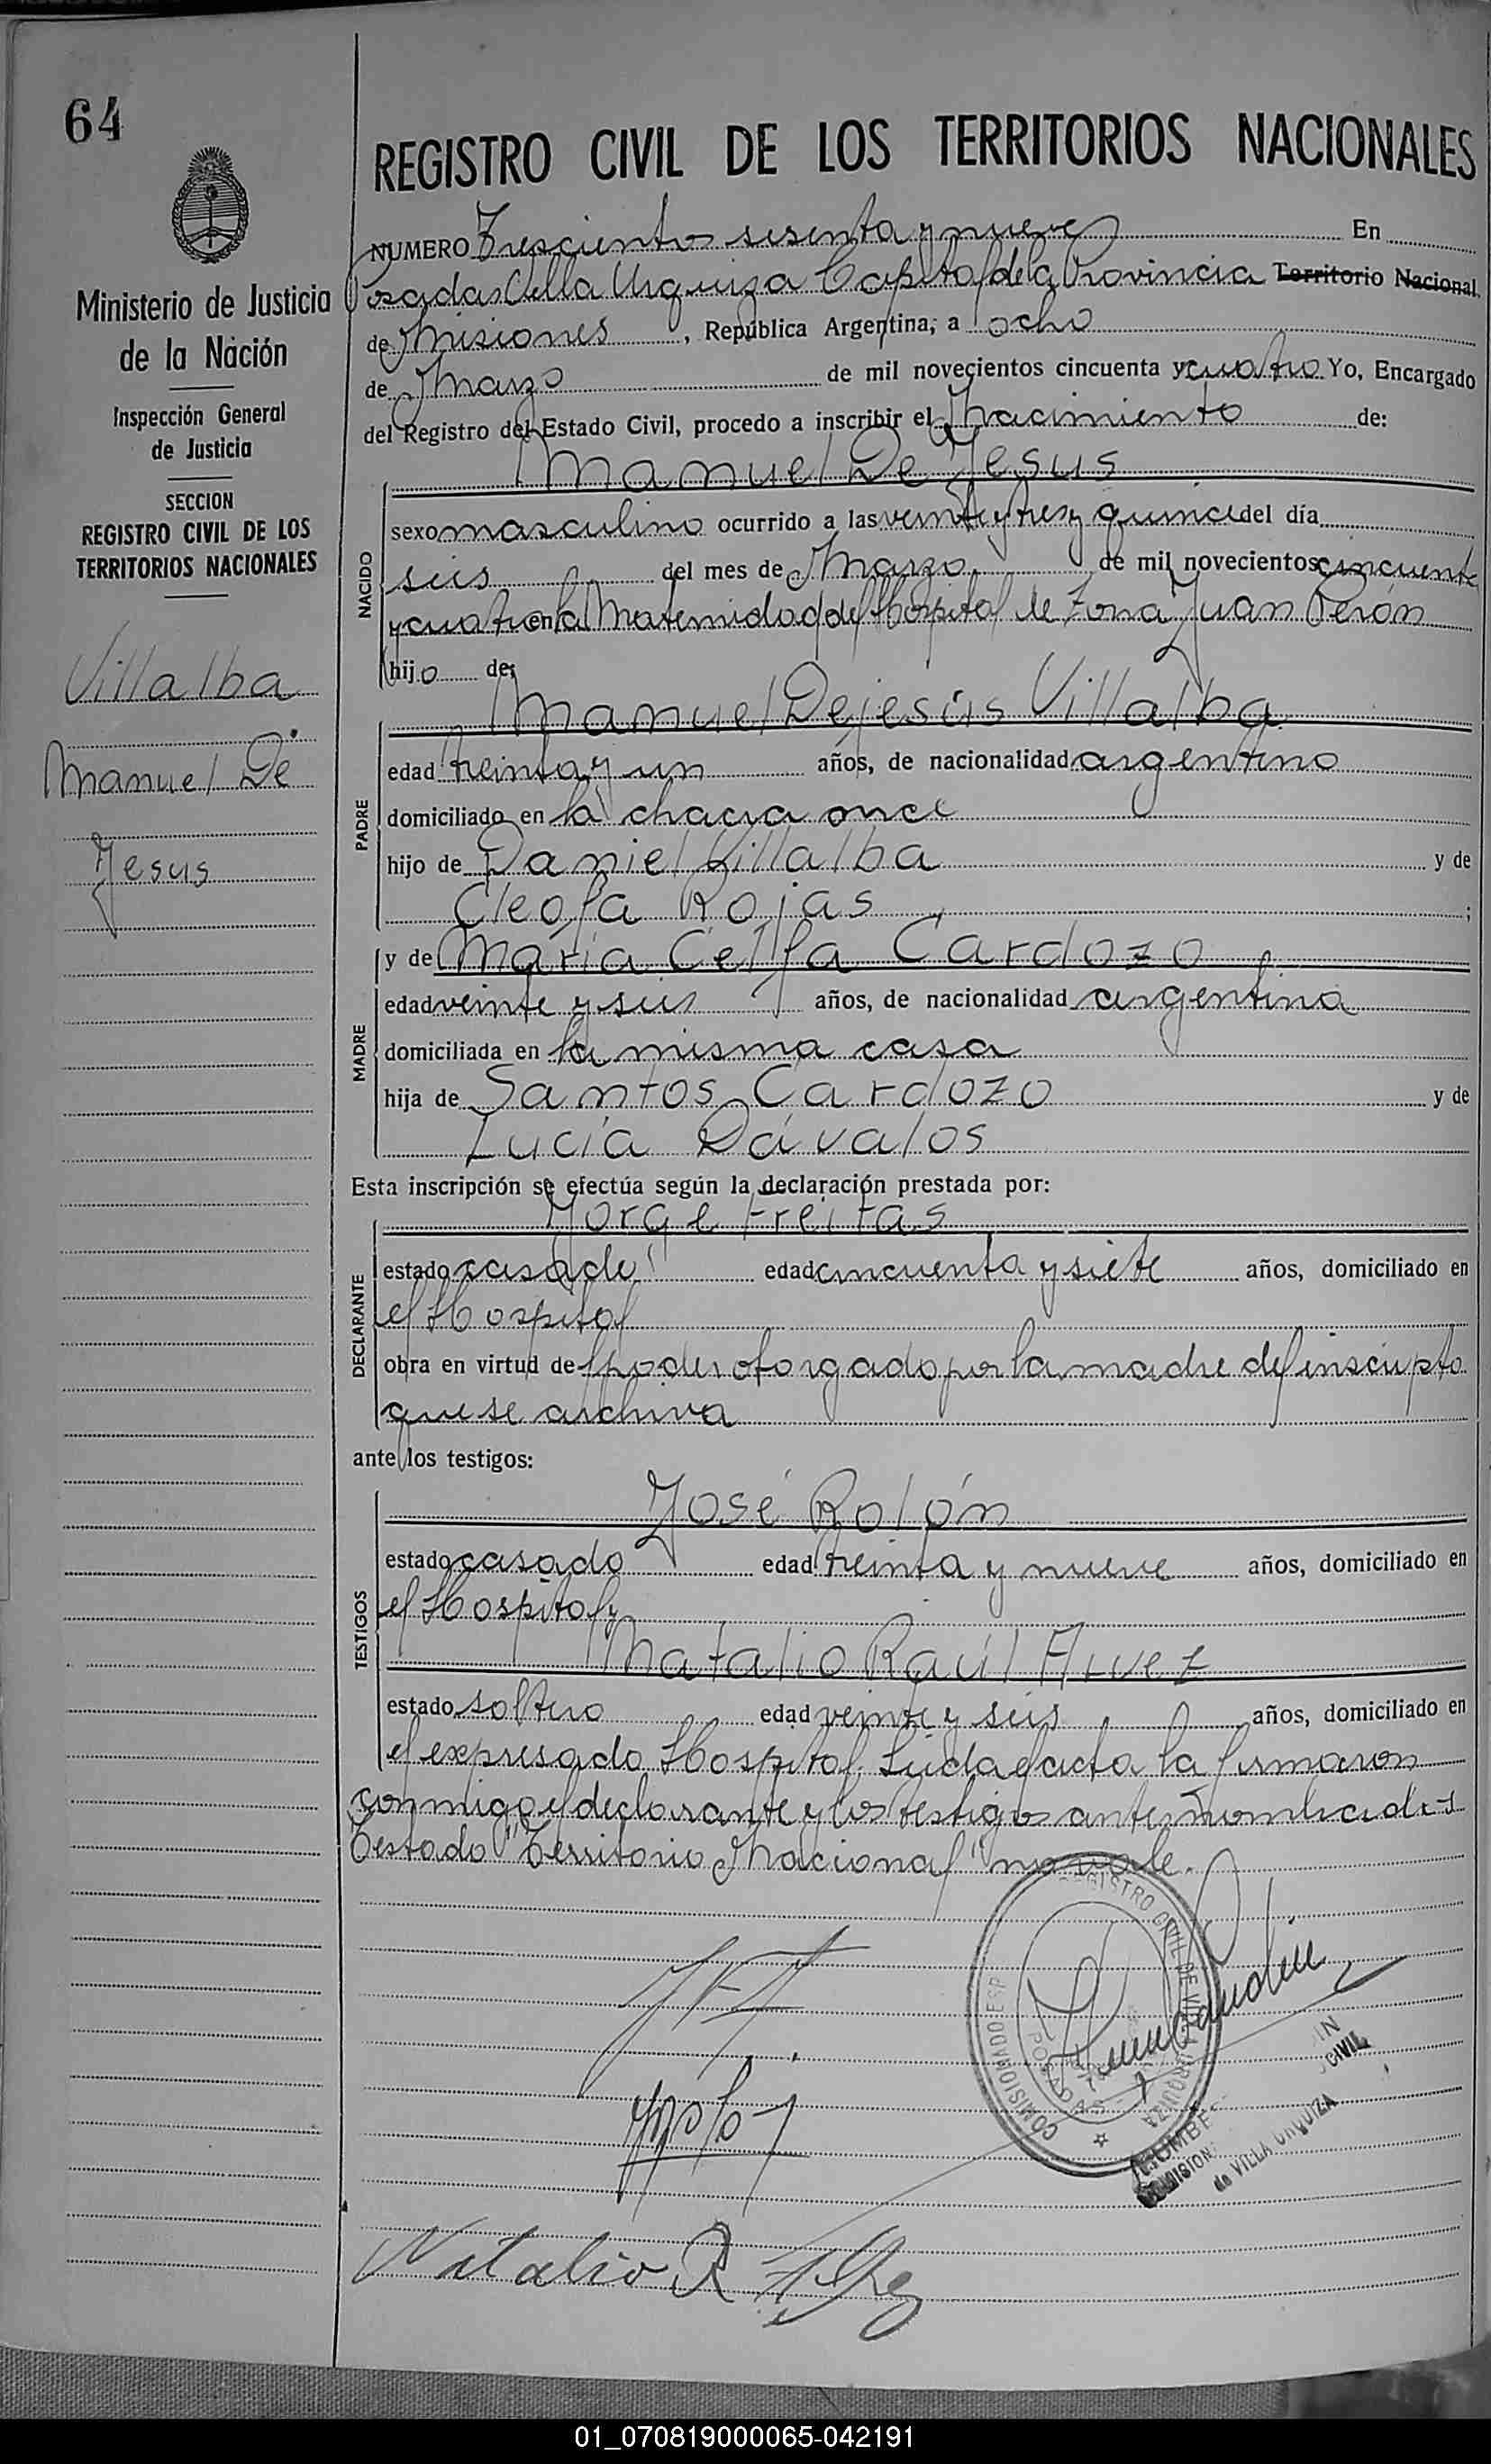 64
Ministerio de Justicia
de la Nación
Inspección General
de Justicia
SECCION
REGISTRO CIVIL DE LOS
TERRITORIOS NACIONALES
Villalba
Manuel De
Jesus
REGISTRO CIVIL DE LOS TERRITORIOS NACIONALES
NUMERO Trescientos sesenta y nueve En
Posadas Villa Urquiza Capital de la Provincia Territorio Nacional
de Misiones, República Argentina, a ocho
de Marzo de mil novecientos cincuenta y cuatro Yo, Encargado
del Registro del Estado Civil, procedo a inscribir el Nacimiento de:
Manuel De Jesus
NACIDO
sexo masculino ocurrido a las veinte y tres y quince del día
seis del mes de Marzo de mil novecientos cincuenta
y cuatro en la Maternidad del Hospital de Zona Juan Perón
hijo de:
Manuel Dejesús Villalba
PADRE
edad treinta y un años, de nacionalidad argentino
domiciliado en la chacra once
hijo de Daniel Villalba y de
Cleofa Rojas ;
y de María Celfa Cardozo
MADRE
edad veinte y seis años, de nacionalidad argentina
domiciliada en la misma casa
hija de Santos Cardozo y de
Lucía Dávalos
Esta inscripción se efectúa según la declaración prestada por:
Jorge Freitas
DECLARANTE
estado casado edad cincuenta y siete años, domiciliado en
el Hospital
obra en virtud del poder otorgado por la madre del inscripto
que se archiva
ante los testigos:
José Rolón
TESTIGOS
estado casado edad treinta y nueve años, domiciliado en
el Hospital y
Natalio Raúl Alvez
estado soltero edad veinte y seis años, domiciliado en
el expresado Hospital. Leida el acta la firmaron
conmigo el declarante y los testigos antes nombrados
Testado "Territorio Nacional" no vale.
REGISTRO CIVIL DE VILLA URQUIZA
COMISIONADO ESP
POSADAS
CIVIL
de VILLA URQUIZA
Natalio R
01_070819000065-042191